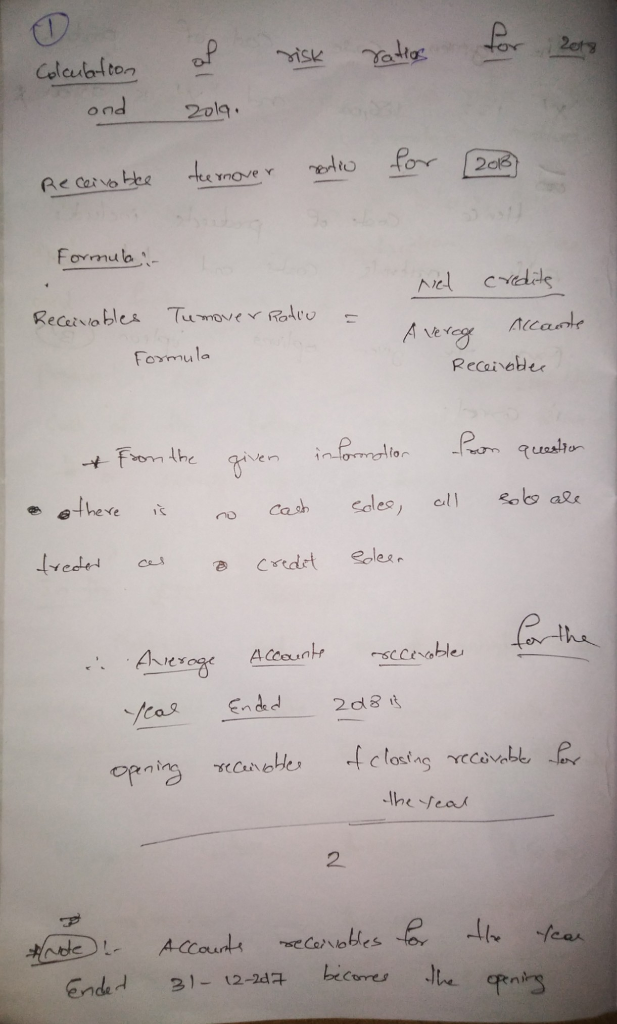 1
Calculation of risk ratios for 2018
and 2019.
Receivables turnover ratio for 2018
Formula:-
Net credits
Receivables Turnover Ratio = Average Accounts
Formula Receivables
* From the given information from question
there is no cash sales, all sales are
treated as credit sales.
∴ Average Accounts receivable for the
year Ended 2018 is
opening receivables + closing receivable for
the year
2
* Note :- Accounts receivables for the year
Ended 31-12-2017 becomes the opening